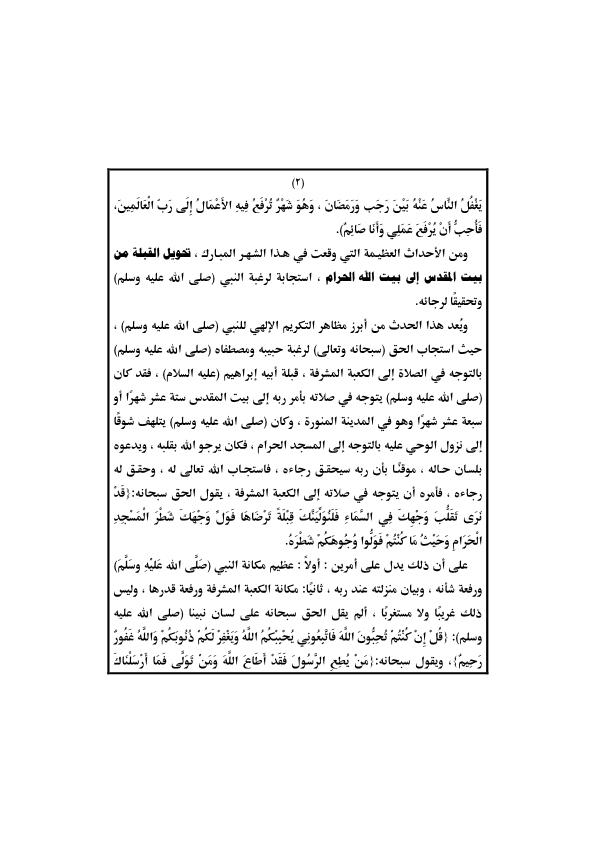 (٢)
يَغْفُلُ النَّاسُ عَنْهُ بَيْنَ رَجَبٍ وَرَمَضَانَ ، وَهُوَ شَهْرٌ تُرْفَعُ فِيهِ الأَعْمَالُ إِلَى رَبِّ الْعَالَمِينَ،
فَأُحِبُّ أَنْ يُرْفَعَ عَمَلِي وَأَنَا صَائِمٌ).
ومن الأحداث العظيمة التي وقعت في هذا الشهر المبارك ، تحويل القبلة من
بيت المقدس إلى بيت الله الحرام ، استجابة لرغبة النبي (صلى الله عليه وسلم)
وتحقيقًا لرجائه.
ويُعد هذا الحدث من أبرز مظاهر التكريم الإلهي للنبي (صلى الله عليه وسلم) ،
حيث استجاب الحق (سبحانه وتعالى) لرغبة حبيبه ومصطفاه (صلى الله عليه وسلم)
بالتوجه في الصلاة إلى الكعبة المشرفة ، قبلة أبيه إبراهيم (عليه السلام) ، فقد كان
(صلى الله عليه وسلم) يتوجه في صلاته بأمر ربه إلى بيت المقدس ستة عشر شهرًا أو
سبعة عشر شهرًا وهو في المدينة المنورة ، وكان (صلى الله عليه وسلم) يتلهف شوقًا
إلى نزول الوحي عليه بالتوجه إلى المسجد الحرام ، فكان يرجو الله بقلبه ، ويدعوه
بلسان حاله ، موقنًا بأن ربه سيحقق رجاءه ، فاستجاب الله تعالى له ، وحقق له
رجاءه ، فأمره أن يتوجه في صلاته إلى الكعبة المشرفة ، يقول الحق سبحانه:{قَدْ
نَرَى تَقَلُّبَ وَجْهِكَ فِي السَّمَاءِ فَلَنُوَلِّيَنَّكَ قِبْلَةً تَرْضَاهَا فَوَلِّ وَجْهَكَ شَطْرَ الْمَسْجِدِ
الْحَرَامِ وَحَيْثُ مَا كُنْتُمْ فَوَلُّوا وُجُوهَكُمْ شَطْرَهُ.
على أن ذلك يدل على أمرين : أولاً : عظيم مكانة النبي (صَلَّى الله عَلَيْهِ وسَلَّمَ)
ورفعة شأنه ، وبيان منزلته عند ربه ، ثانيًا: مكانة الكعبة المشرفة ورفعة قدرها ، وليس
ذلك غريبًا ولا مستغربًا ، ألم يقل الحق سبحانه على لسان نبينا (صلى الله عليه
وسلم): {قُلْ إِنْ كُنْتُمْ تُحِبُّونَ اللَّهَ فَاتَّبِعُونِي يُحْبِبْكُمُ اللَّهُ وَيَغْفِرْ لَكُمْ ذُنُوبَكُمْ وَاللَّهُ غَفُورٌ
رَحِيمٌ}، ويقول سبحانه:{مَنْ يُطِعِ الرَّسُولَ فَقَدْ أَطَاعَ اللَّهَ وَمَنْ تَوَلَّى فَمَا أَرْسَلْنَاكَ